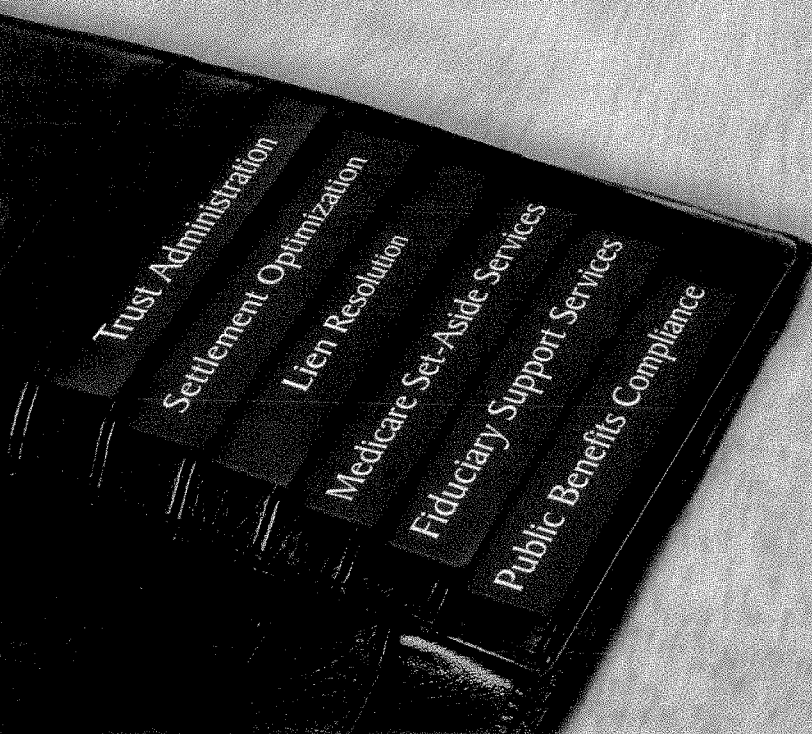 Trust Administration
Settlement Optimization
Lien Resolution
Medicare Set-Aside Services
Fiduciary Support Services
Public Benefits Compliance